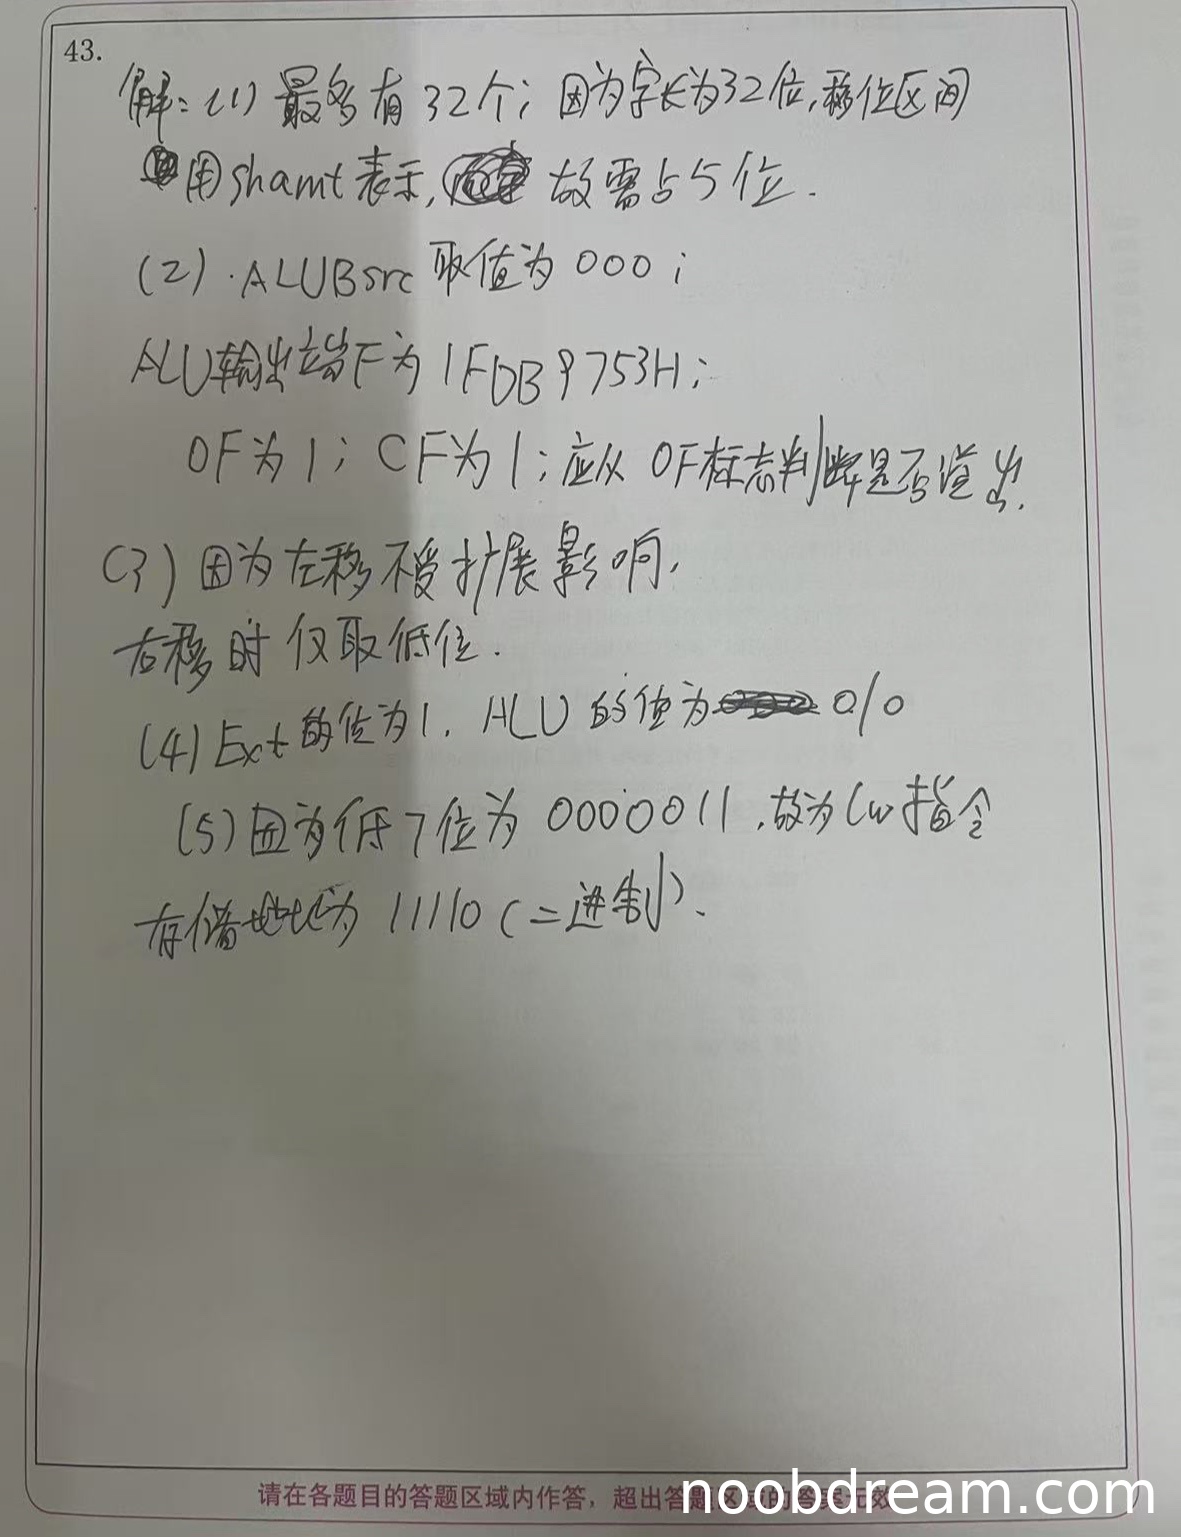 43.
解：(1) 最多有32个；因为字长为32位，移位区间
用shamt表示，故需占5位．
(2)．ALUBsrc 取值为 000；
ALU输出端F为1FDB9753H；
OF为1；CF为1；应从OF标志判断是否溢出．
(3) 因为左移不受扩展影响，
右移时仅取低位．
(4) Ext的值为1．ALU的值为 010
(5) 因为低7位为 0000011，故为lw指令
存储地址为 11110（二进制）．
请在各题目的答题区域内作答，超出答题区域的答案无效
noobdream.com